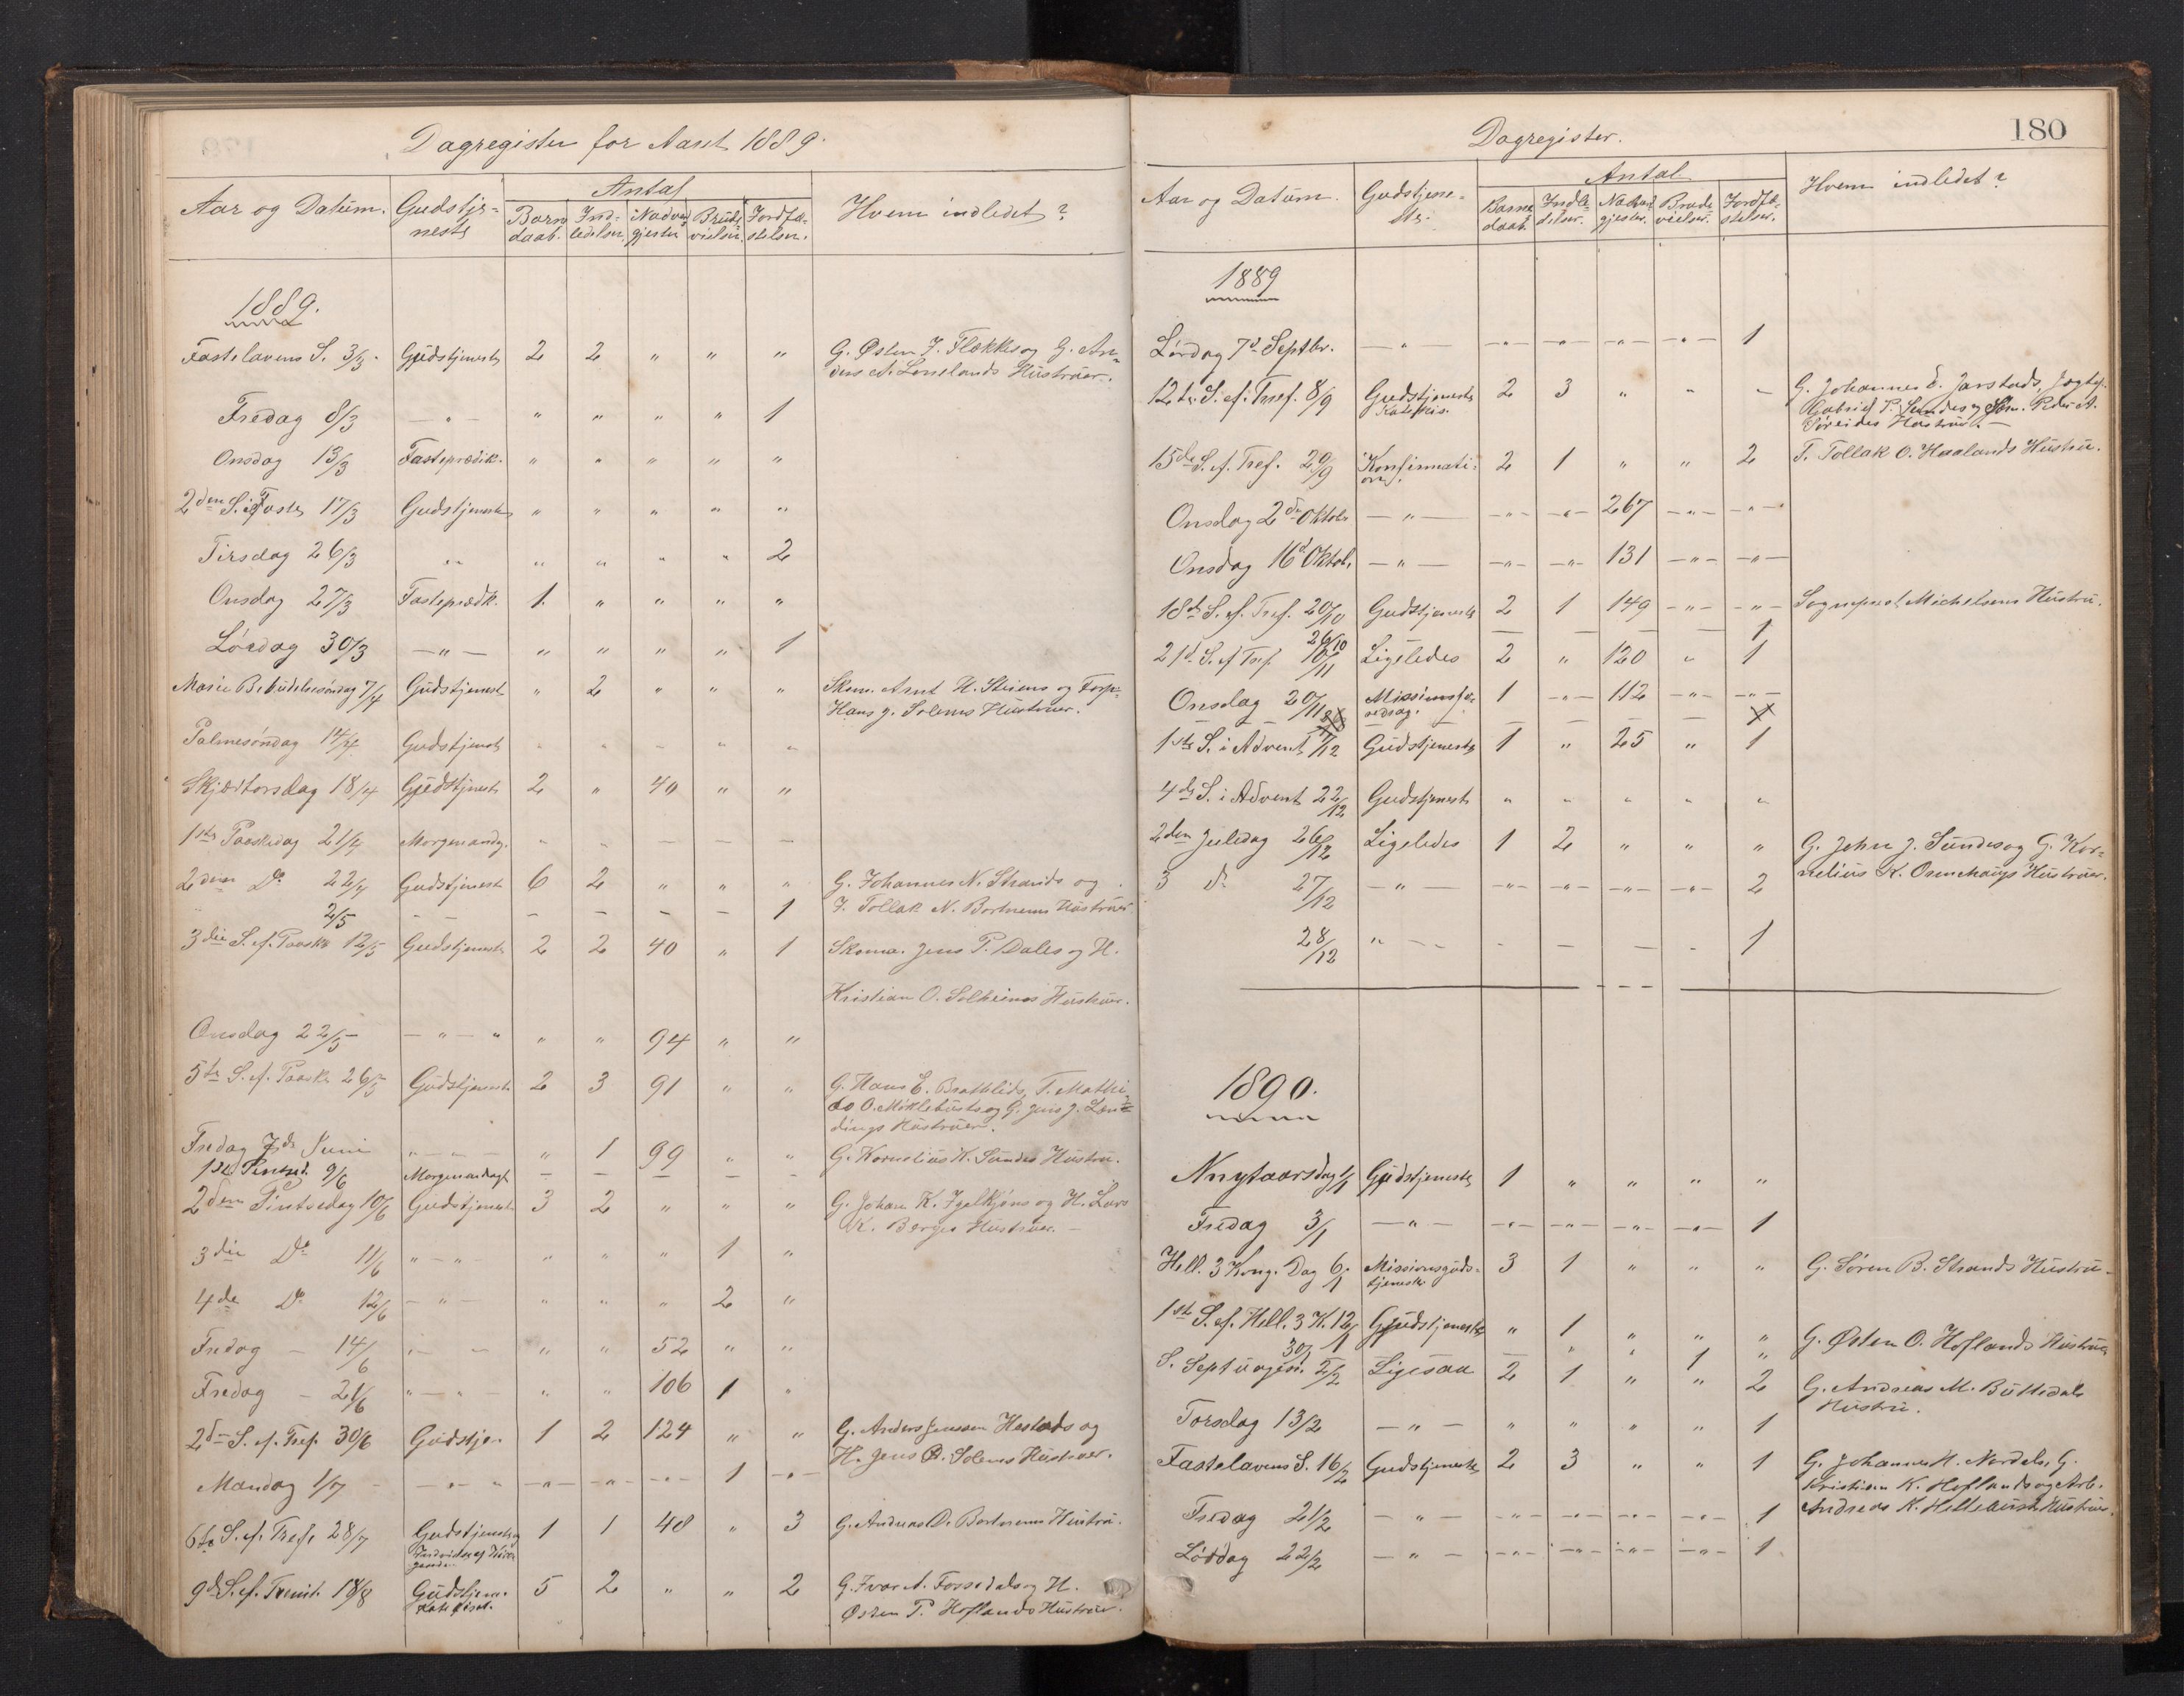 Dagregister for Aaret 1889.
Aar og Datum. Gudstje- Antal Hvem indledet?
neste Barne Ind- Nadver Brude Jordfæ-
daab. ledelser. gjester vielser. stelser.
1889.
Fastelavens S. 3/3. Gudstjeneste 2 2 " " " G. Østen J. Flokkes og G. An-
ders A. Lonelands Hustruer.
Fredag 8/3 — " — " " " " 1
Onsdag 13/3 Fasteprædik. " " " " "
2den S. i Faste 17/3 Gudstjeneste " " " " "
Tirsdag 26/3 " " " " " " 2
Onsdag 27/3 Fasteprædk. 1. " " " "
Lørdag 30/3 — " — " " " " 1
Marie Bebudelsesøndag 7/4 Gudstjenest " 2 " " " Skom. Arnt H. Steiens og Forp.
Hans J. Solems Hustruer.
Palmesøndag 14/4 Gudstjenest " " " " "
Skjærtorsdag 18/4 Gudstjenest 2 " 40 " "
1ste Paaskedag 21/4 Morgenandg. " " — — —
2den Do 22/4 Gudstjenest 6 2 " " " G. Johannes N. Strands og
2/5 — — — — — — 1 F. Tollak N. Bortnems Hustruer
3die S. ef. Paaske 12/5 Gudstjenest 2 2 40 " 1 Skoma. Jens P. Dales og H.
Kristian O. Solheims Hustruer.
Onsdag 22/5 — " — " " " 94 " "
5te S. ef. Paaske 26/5 Gudstjenest 2 3 91 " " G. Hans E. Brattlids, T. Mathi-
as O. Miklebusts og G. Jens J. Løn-
dings Hustruer.
Fredag 7de Juni " — " — " 1 99 " " G. Kornelius K. Sundes Hustru.
1ste Pintsed. 9/6 Morgenandagt — — — — —
2den Pintsedag 10/6 Gudstjenest 3 2 " " " G. Johan K. Igelkjøns og H. Lars
K. Berges Hustruer. —
3die Do 11/6 " — " — " " " 1 "
4de Do 12/6 — " — " " " 2 "
Fredag — 14/6 " — — " " 52 " "
Fredag — 21/6 " — " — " " 106 1 "
2den S. ef. Tref. 30/6 Gudstje. 1 2 124 " " G. Anders Jenssen Hestads og
H. Jens B. Solems Hustruer.
Mandag 1/7 — " — " — " — — " — — " — 1 — " —
6te S. ef. Tref. 28/7 Gudstjeneste 1 1 48 " 3 G. Andreas D. Bortnems Hustru.
9de S. ef. Trenit. 18/8 Gudstjen. 5 2 " " 2 G. Ivar A. Fossedals og H.
Katekisat. Østen P. Hoflands Hustruer.
Dagregister. 180
Aar og Datum. Gudstjene- Antal Hvem indledet?
ste. Barne Indle- Nadver Brude Jordfæ-
daab. delser. gjester. vielser. stelser.
1889
Lørdag 7d Septbr. — " — — " — — " — — " — — " — 1
12te S. ef. Tref. 8/9 Gudstjeneste 2 3 " " " G. Johannes E. Jarstads, Jagtsp.
Katekis. Gabriel P. Sundes og Søm. Peder A.
Søreides Hustruer. —
15de S. ef. Tref. 29/9 Konfirmati- 2 1 " " 2 T. Tollak O. Haalands Hustru.
on.
Onsdag 2de Oktob. — " — — " — — " — 267 — " — — " —
Onsdag 16d Oktob. — " — — " — — " — 131 — " — — " —
18de S. ef. Tref. 20/10 Gudstjeneste 2 1 149 — " — — " — Sognepræst Michelsens Hustru.
26/10 — — — — 1
21de S. ef Tref. 10/11 Ligeledes 2 " 120 " 1
Onsdag 20/11 Missionsfo- 1 — " — 112 — " — — " —
redrag.
1ste S. i Advent 1/12 Gudstjeneste 1 " 25 " 1
4de S. i Advent 22/12 Gudstjenest " " " " "
2den Juledag 26/12 Ligeledes 1 2 " " " G. John J. Sundes og G. Kor-
nelius K. Osmehaugs Hustruer.
3 d. 27/12 — " — — " — — " — — " — — " — 2
28/12 " — — — — — — 1
1890.
Nnytaarsdag 1/1 Gudstjeneste 1 " " " "
Fredag 3/1 — " — — " — — " — — " — — " — 1
Hell. 3 Kong. Dag 6/1 Missionsguds- 3 1 " " " G. Søren B. Strands Hustru.
tjeneste
1ste S. ef. Hell. 3 K. 12/1 Gudstjeneste " 1 " " " G. Østen O. Hoflands Hustru
30/1 — " " 1 "
S. Septuages. 2/2 Ligesaa 2 1 " " 2 G. Andreas M. Buttedals
Hustru.
Torsdag 13/2 — " — " " " " 1
Fastelavens S. 16/2 Gudstjeneste 2 3 " " 1 G. Johannes H. Nordals, G.
Kristian K. Hoflands og Arb.
Andreas K. Hellebust Hustruer.
Fredag 21/2 — " — — " — — " — — " — — " — 1
Lørdag 22/2 — " — — " — — " — — " — — " — 1